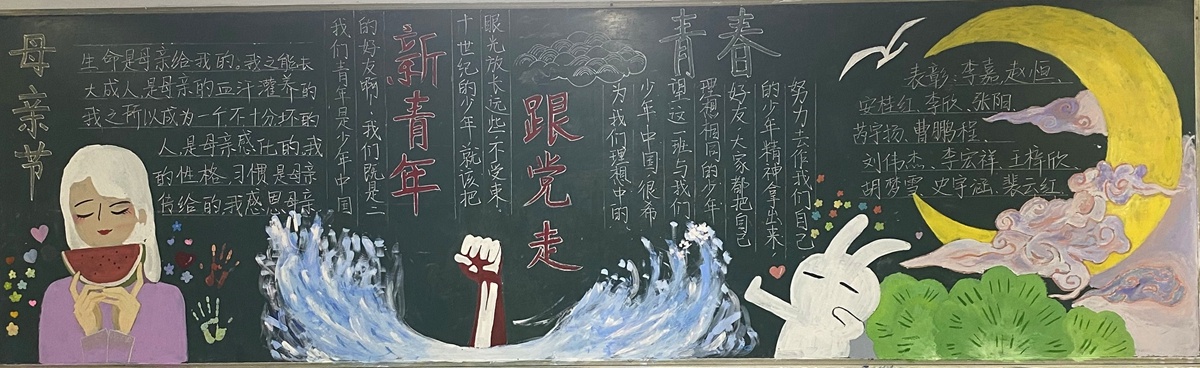 母亲节
生命是母亲给我的,我之能长
大成人是母亲的血汁灌养的
我之所以成为一个不十分坏的
人是母亲感化的,我
的性格,习惯是母亲
传给的,我感恩母亲
我们青年是少年中国
的好友啊,我们既是二
新青年
十世纪的少年,就该把
眼光放长远些不受束
跟党走
青春
为我们理想中的
少年中国,很希
望这一班与我们
理想相同的少年
好友,大家都把自己
的少年精神拿出来,
努力去作我们自己
表彰:李嘉,赵恒、
安桂红,李欣、张阳.
芮宇扬、曹鹏程、
刘伟杰、李宏祥 王梓欣、
胡梦雪 史宇涵、裴云红.